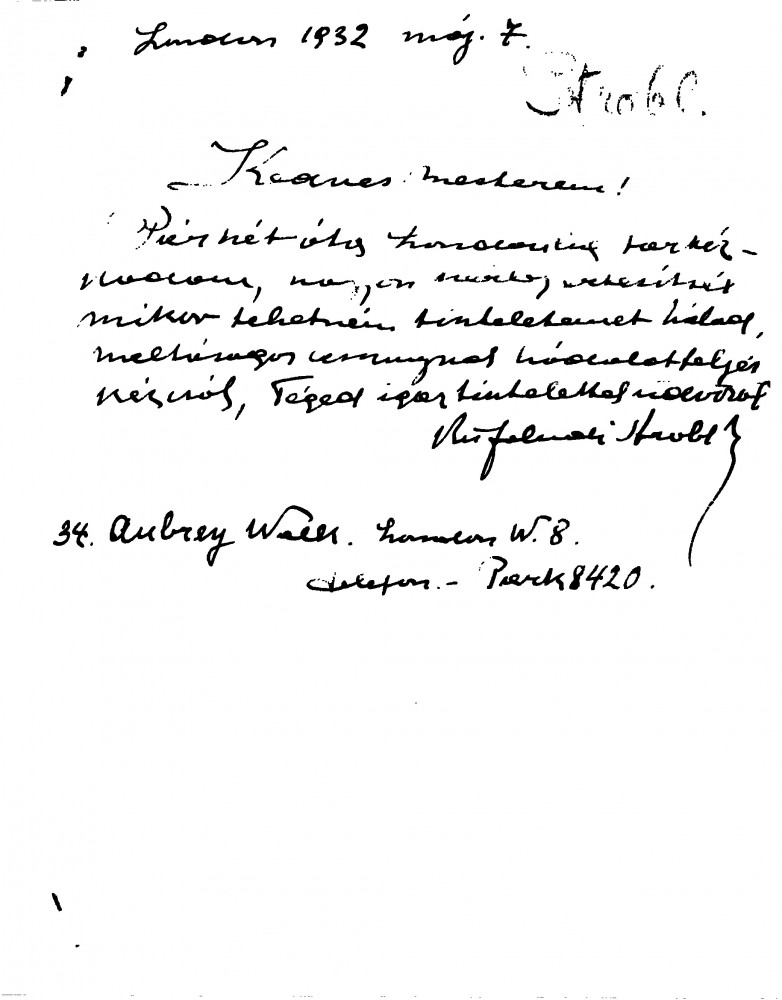 London 1932 máj. 7.
Strobl.
Kedves mesterem!
Pár hét óta Londonban tartóz-
kodom, nagyon
mikor tehetném tiszteletemet nálad,
méltóságos asszonynak hódolatteljes
kézcsók, Téged igaz tisztelettel üdvözöl
Kisfaludi Strobl
34. Aubrey Walk. London W. 8.
telefon. - Park 8420.